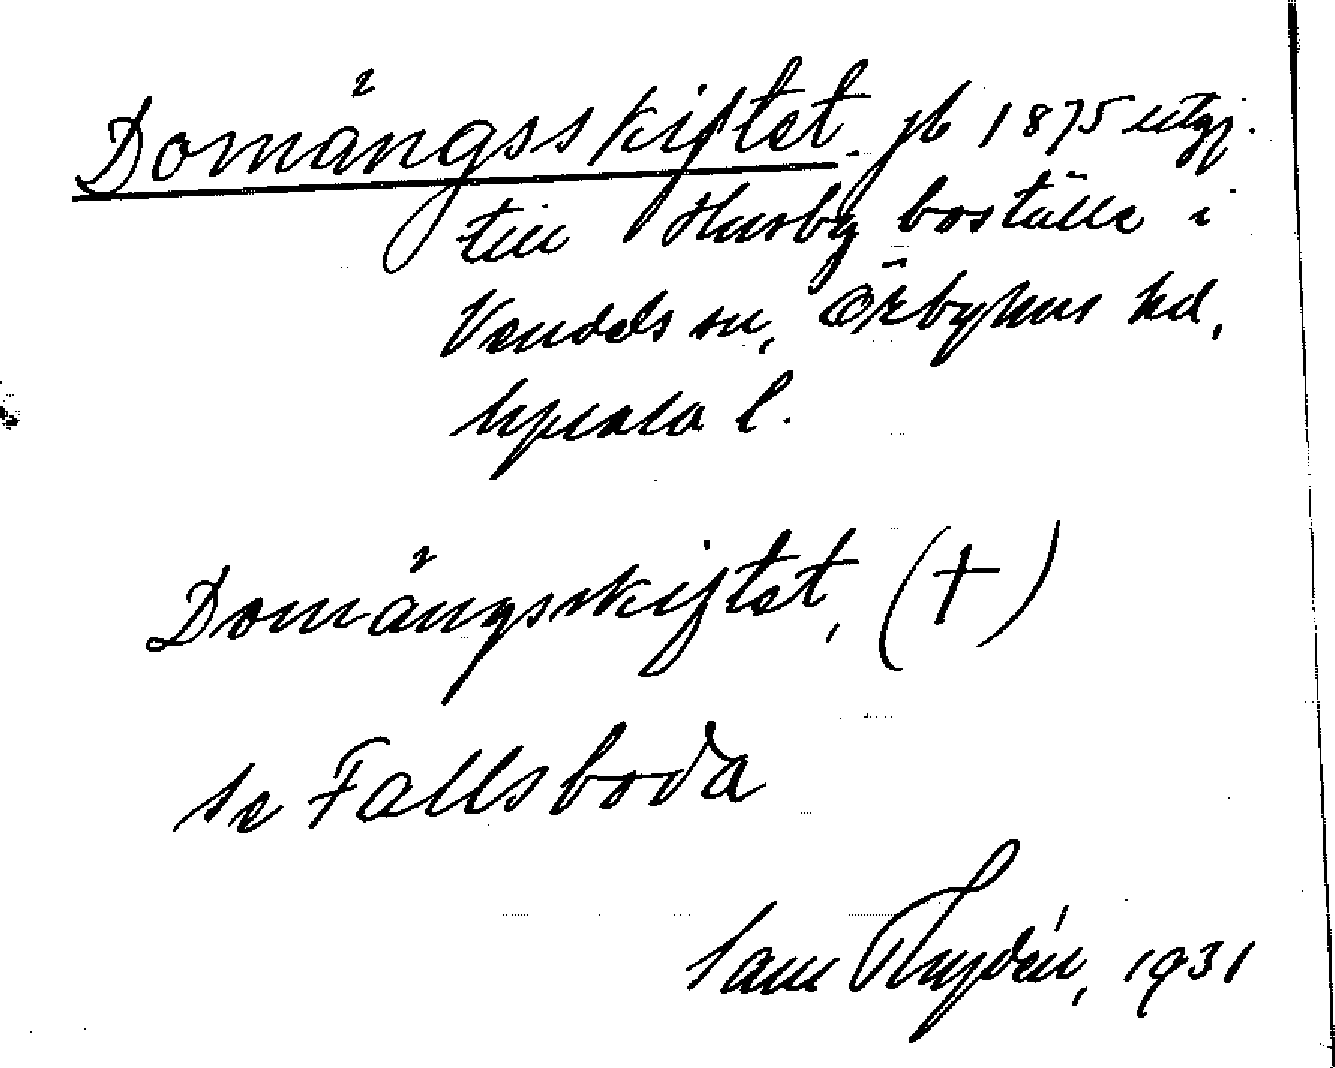 Domängsskiftet. jb 1875 utgj.
till Husby boställe i
Vendels sn, Örbyhus hd,
Upsala l.
Domängsskiftet, (†)
se Fallsboda
Sam 1931